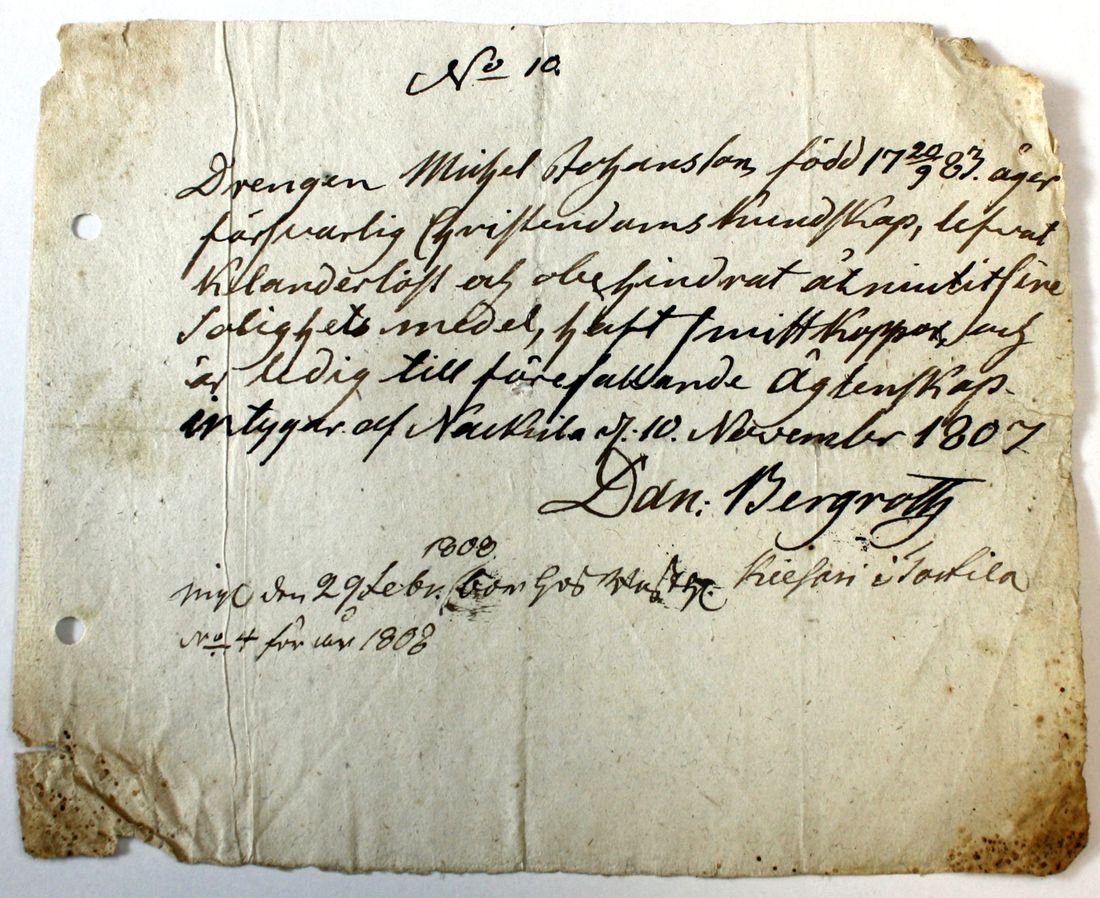 No 10.
Drengen Michel Johansson, född 17 20/9 83. äger
försvarlig Christendoms Kundskap, lefvat
Klanderlöst och obehindrat åtniutit sine
Salighets medel, haft Smittkoppor, och
är ledig till förefallande Ägtenskap.
intygar. af Nackila d: 10. November 1807
Dan: Bergroth
1808.
den 29 Febr. hos Kiesari i Torkila
No 4 för år 1808